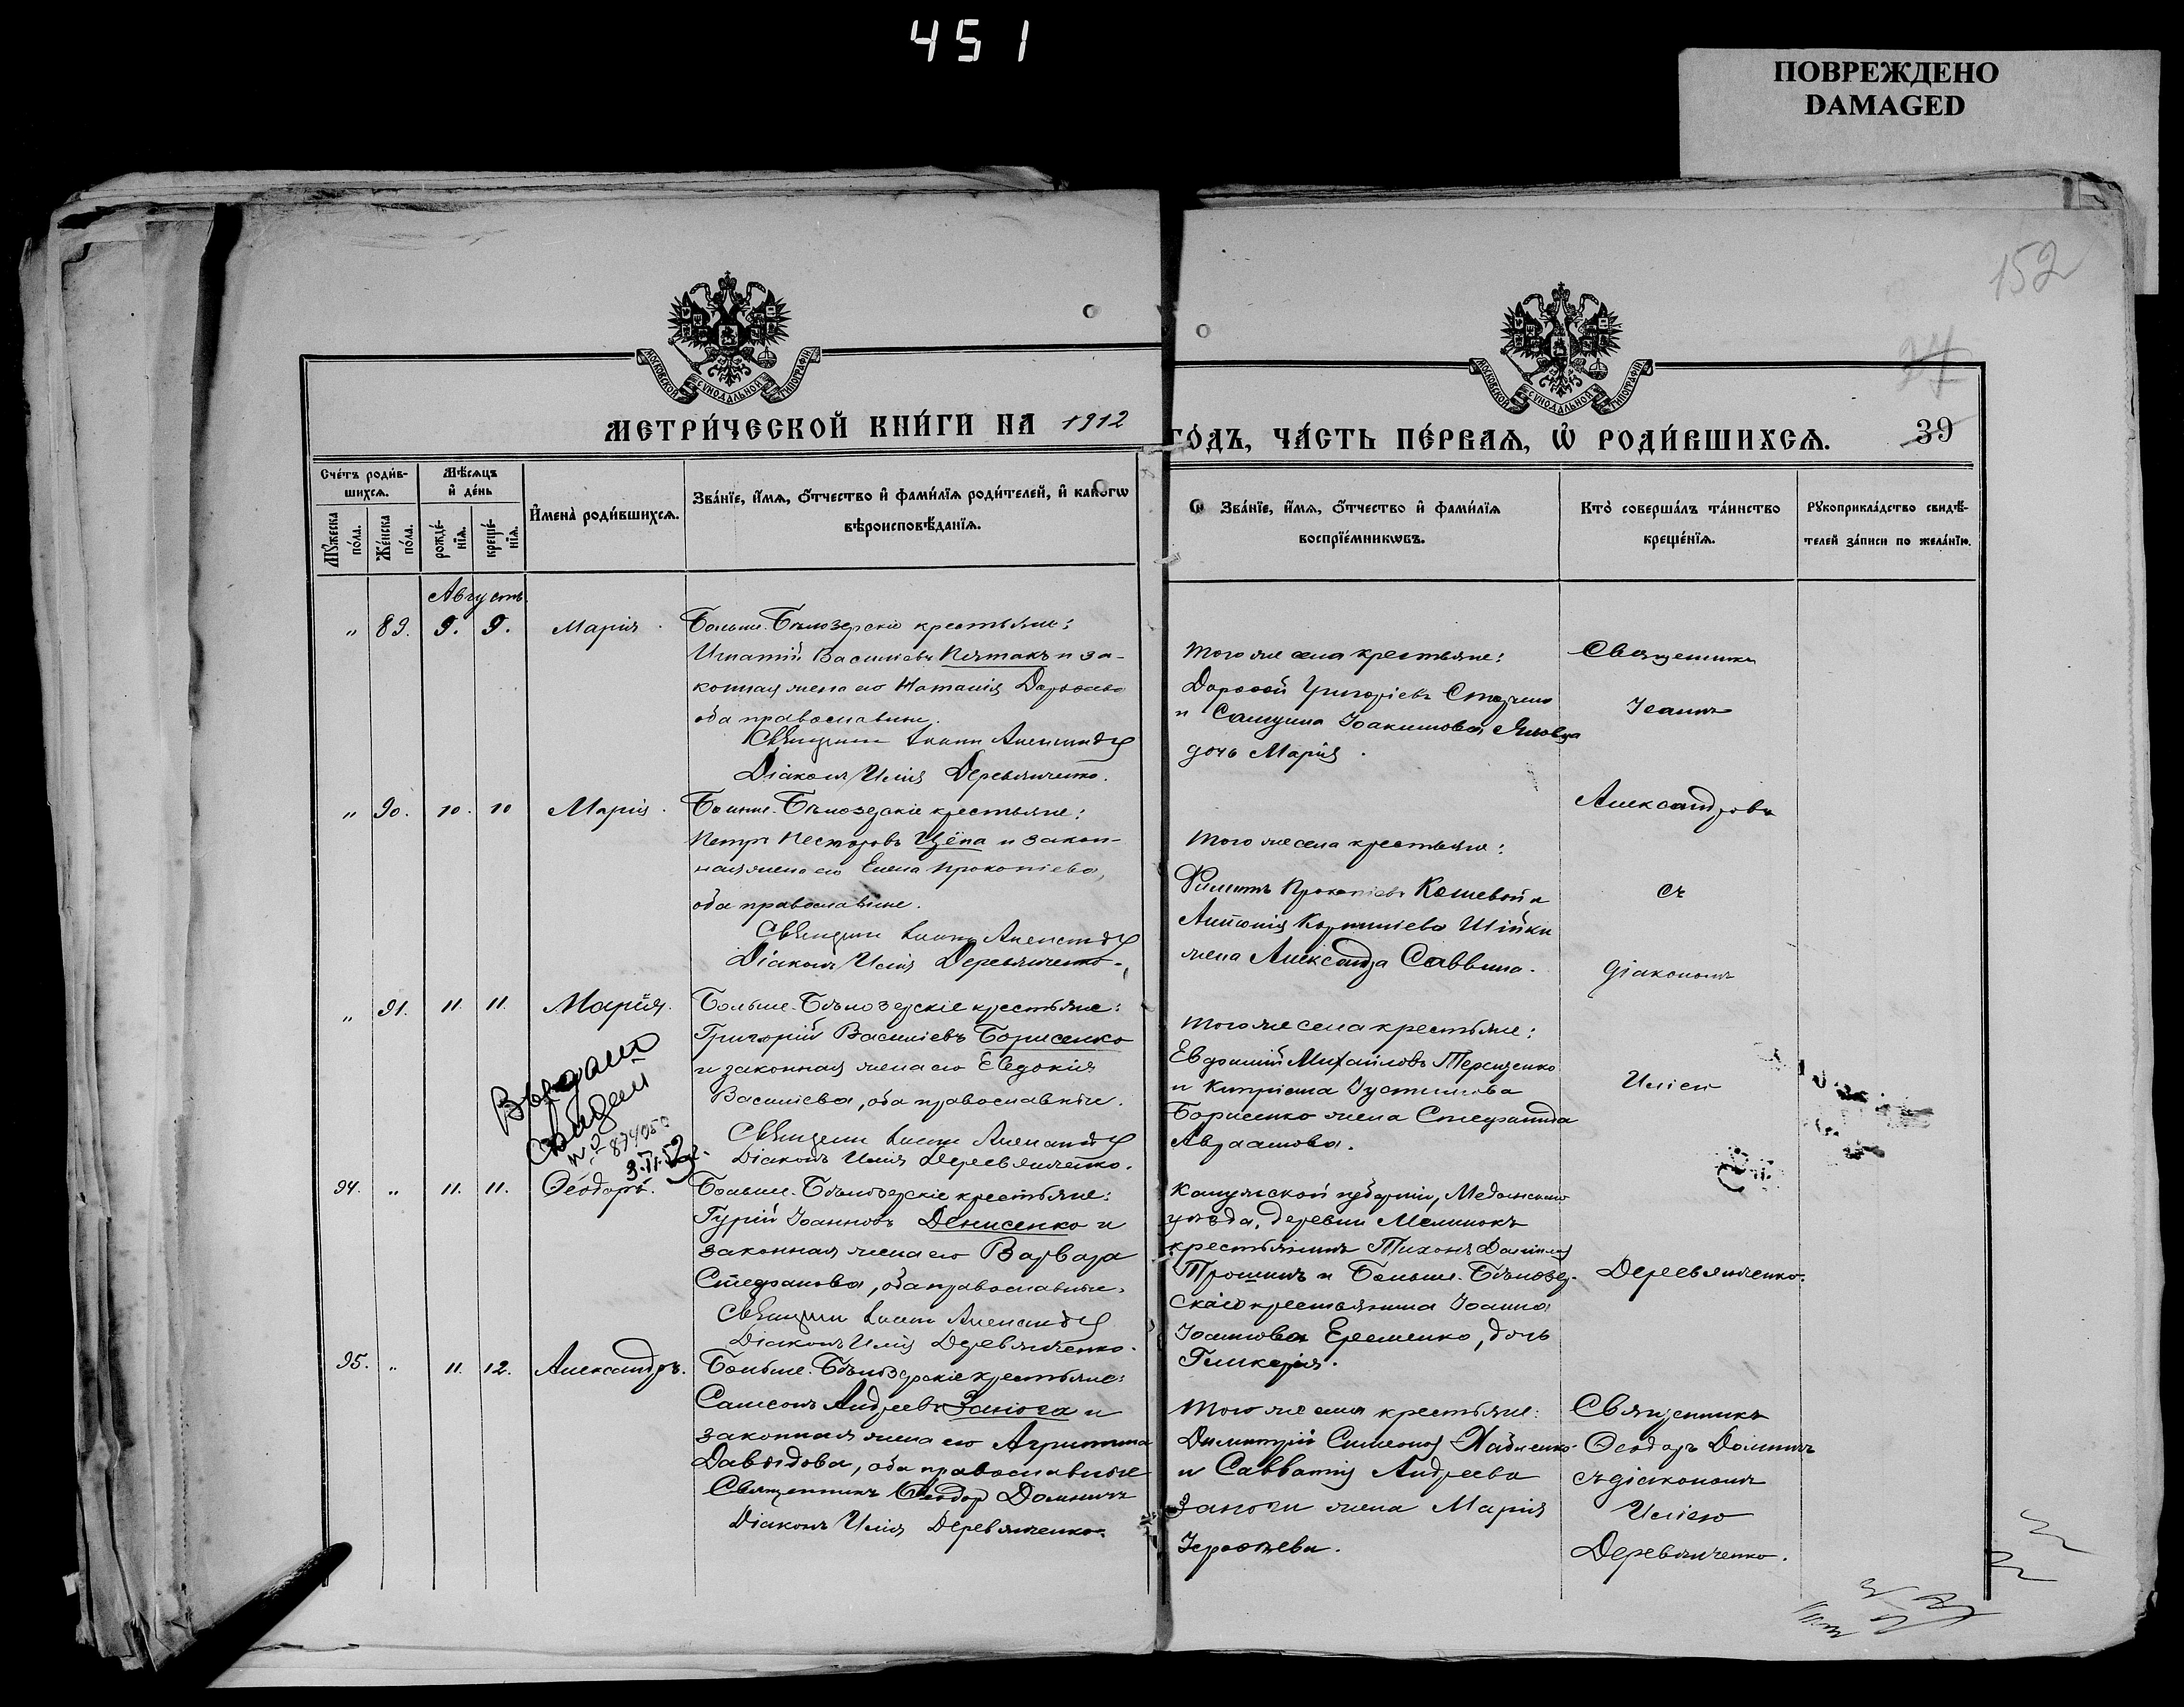 451
ПОВРЕЖДЕНО
DAMAGED
152
37
39
МОСКОВСКОЙ СУНОДАЛЬНОЙ ТИПОГРАФІИ
МОСКОВСКОЙ СУНОДАЛЬНОЙ ТИПОГРАФІИ
МЕТРИ́ЧЕСКОЙ КНИ́ГИ НА 1912
ГО́ДЪ, ЧА́СТЬ ПЕ́РВАЯ, Ѡ҆ РОДИ́ВШИХСЯ.
Сче́тъ роди́в-
шихся.
Мѣ́сяцъ
и҆ де́нь
Мꙋ́жеска
по́ла.
Же́нска
по́ла.
рожде́-
нїя.
креще́-
нїя.
И҆мена̀ роди́вшихся.
Зва́нїе, и҆́мя, ѻ҆́тчество и҆ фами́лїя роди́телей, и҆ како́гѡ
вѣроисповѣ́данїя.
Зва́нїе, и҆́мя, ѻ҆́тчество и҆ фами́лїя
воспрїе́мникѡвъ.
Кто̀ соверша́лъ та́инство
креще́нїя.
Рꙋкоприкла́дство свидѣ́-
телей за́писи по жела́нїю.
Августъ.
" 89. 9. 9. Марія.
Больше-Бѣлозерскіе крестьяне:
Игнатій Васильевъ Пятакъ и за-
конная жена его Наталія Дорофеева
оба православные.
Священникъ Іоаннъ Александровъ
Діаконъ Илія Деревянченко.
Того же села крестьяне:
Дорофей Григоріевъ
и Іоакимова
дочь Марія.
Священникъ
Іоаннъ
Александровъ
съ
діакономъ
Иліею
Деревянченко.
" 90. 10. 10 Марія.
Больше-Бѣлозерскіе крестьяне:
Петръ Несторовъ Щёпа и закон-
ная жена его Елена Прокопіева,
оба православные.
Священникъ Іоаннъ Александровъ
Діаконъ Илія Деревянченко.
Того же села крестьяне:
Филиппъ Прокопіевъ Кошевой и
Антонія Корниліева Шійки
жена Александра Саввина.
" 91. 11. 11. Марія.
Больше-Бѣлозерскіе крестьяне:
Григорій Васильевъ Борисенко
и законная жена его Евдокія
Васильева, оба православные.
Священникъ Іоаннъ Александровъ
Діаконъ Илія Деревянченко.
Того же села крестьяне:
Евдокимій Михайловъ Терещенко
и Кипріана Іустинова
Борисенко жена Стефанида
Авраамова.
Выдано
свидет
№ 874050
3.VI.52г.
94. " 11. 11. Ѳеодоръ.
Больше-Бѣлозерскіе крестьяне:
Гурій Іоанновъ Денисенко и
законная жена его Варвара
Стефанова, оба православные.
Священникъ Іоаннъ Александровъ
Діаконъ Илія Деревянченко.
Калужской губерніи, Медынскаго
уѣзда, деревни
крестьянинъ Тихонъ Даніиловъ
Трошинъ и Больше-Бѣлозер-
скаго крестьянина Іоанна
Іоаннова Еременко, дочь
Гликерія.
95. " 11. 12. Александръ.
Больше-Бѣлозерскіе крестьяне:
Самсонъ Андреевъ Занога и
законная жена его Агриппина
Давидова, оба православные
Священникъ Ѳеодоръ Доминъ
Діаконъ Илія Деревянченко.
Того же села крестьяне:
Димитрій Симеоновъ
и Савватія Андреева
Заноги жена Марія
Іероѳеева.
Священникъ
Ѳеодоръ Доминъ
съ діакономъ
Иліею
Деревянченко.